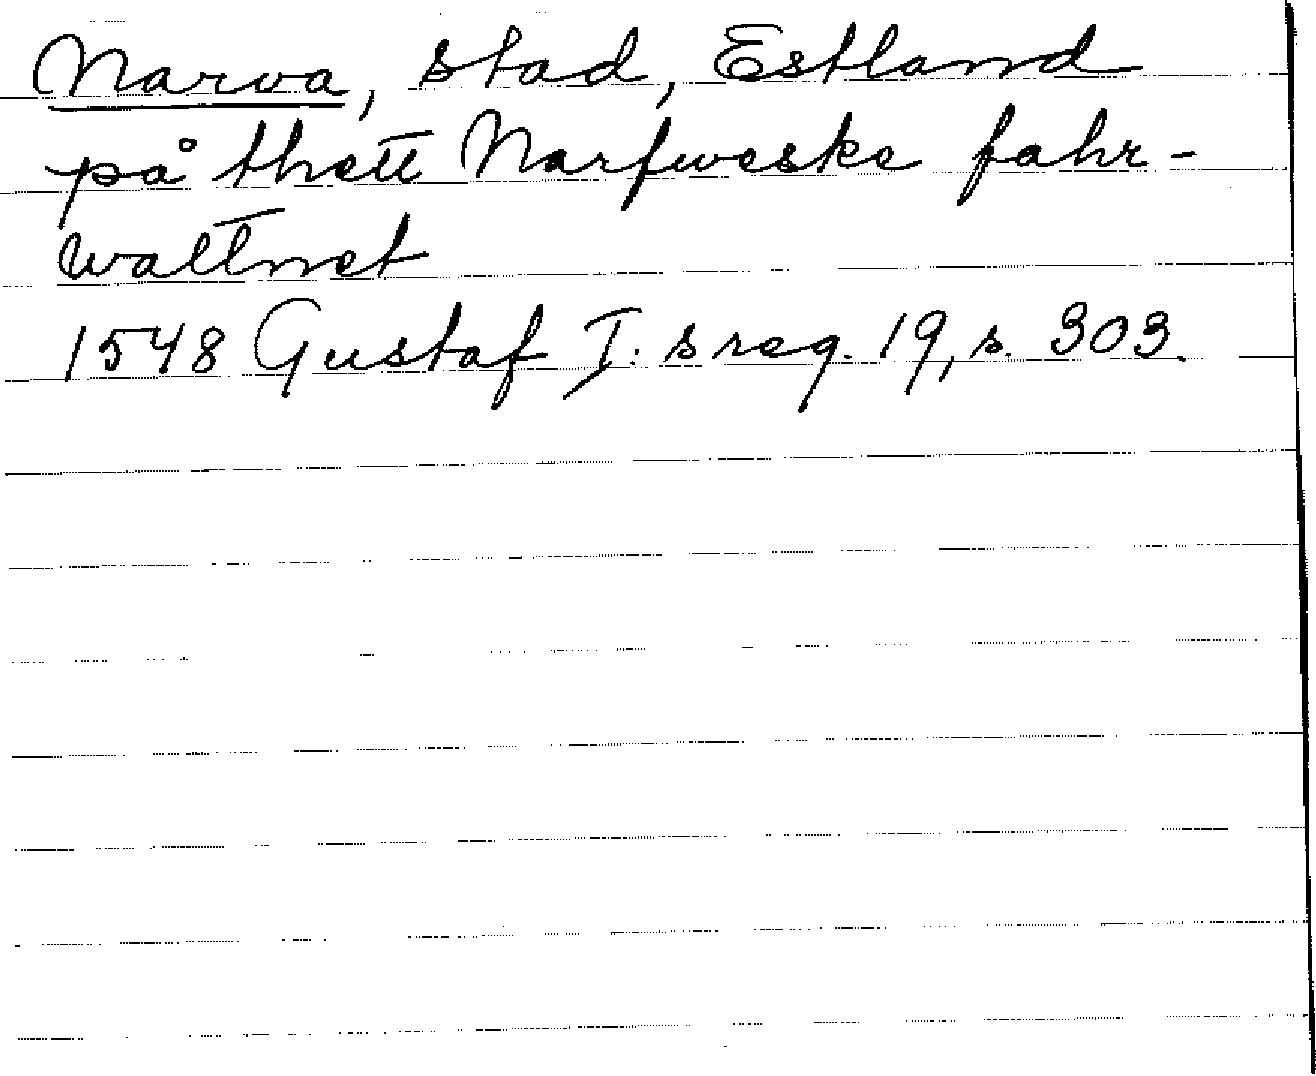 Narva, stad, Estland
på thett Narfweske fahr-
wattnet
1548 Gustaf I: s reg. 19, s. 303.